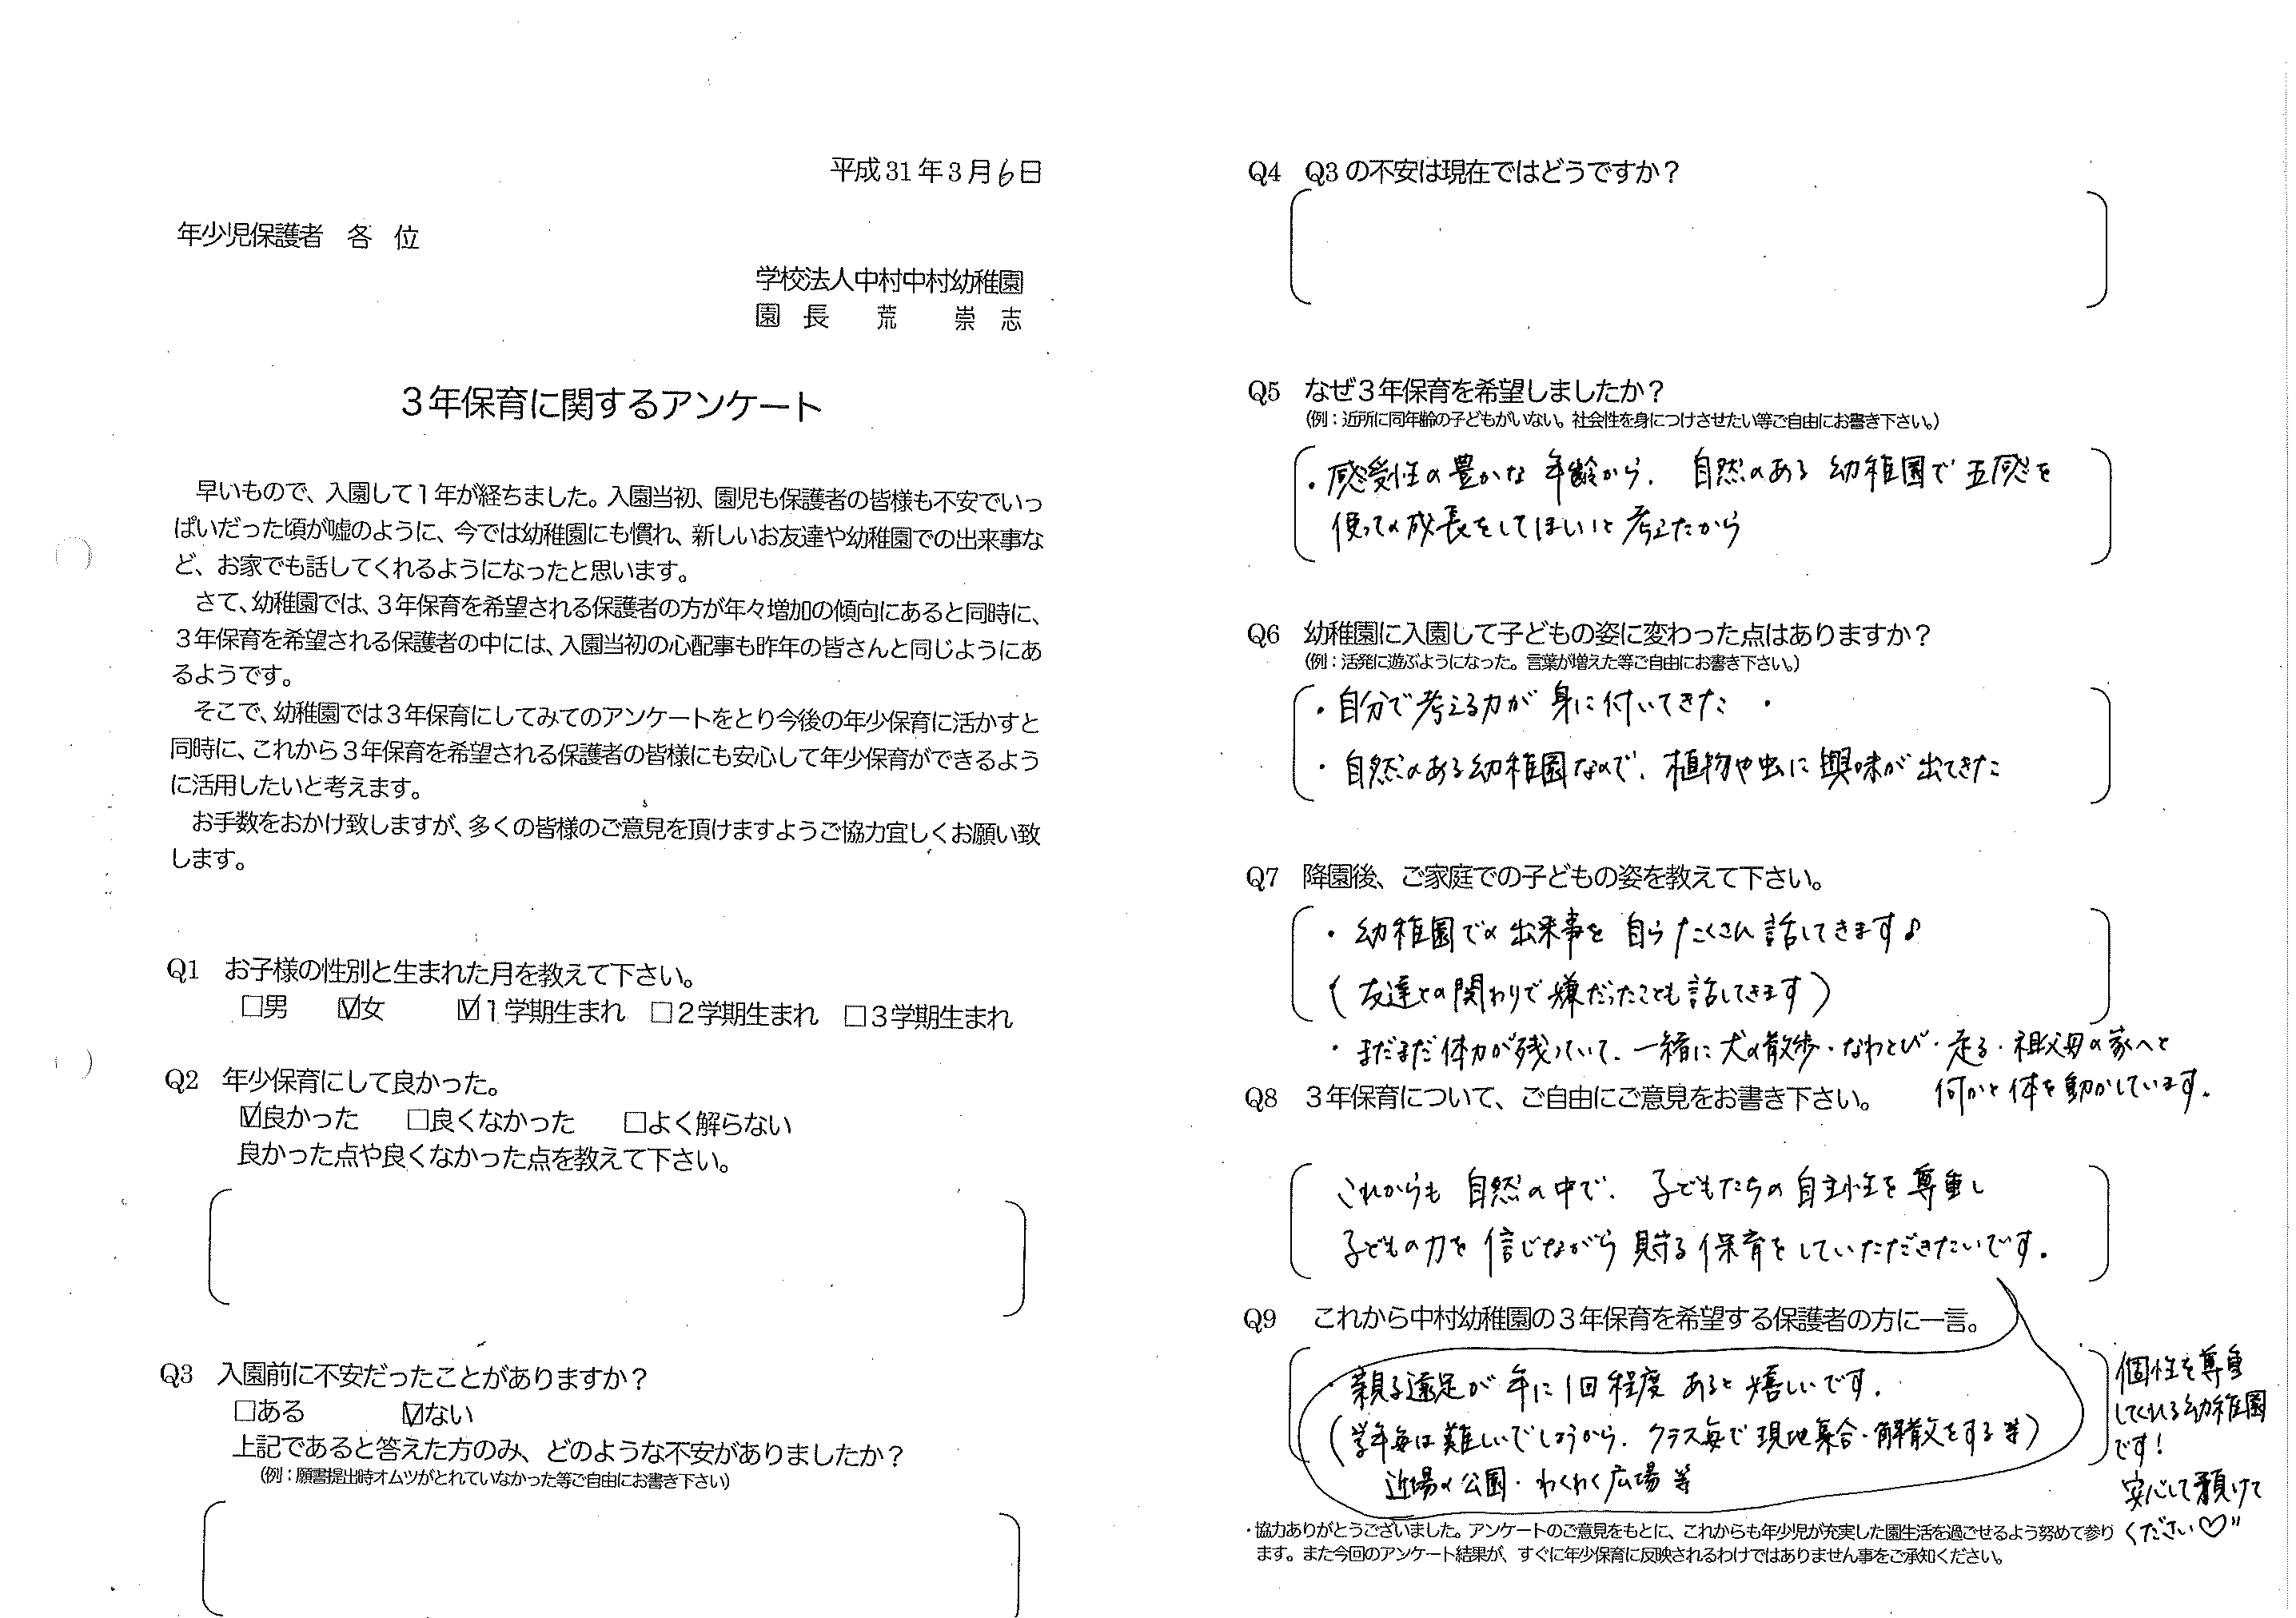 平成31年3月6日
年少児保護者　各　位
学校法人中村中村幼稚園
園　長　　荒　　崇　志
３年保育に関するアンケート
早いもので、入園して１年が経ちました。入園当初、園児も保護者の皆様も不安でいっ
ぱいだった頃が嘘のように、今では幼稚園にも慣れ、新しいお友達や幼稚園での出来事な
ど、お家でも話してくれるようになったと思います。
さて、幼稚園では、３年保育を希望される保護者の方が年々増加の傾向にあると同時に、
３年保育を希望される保護者の中には、入園当初の心配事も昨年の皆さんと同じようにあ
るようです。
そこで、幼稚園では３年保育にしてみてのアンケートをとり今後の年少保育に活かすと
同時に、これから３年保育を希望される保護者の皆様にも安心して年少保育ができるよう
に活用したいと考えます。
お手数をおかけ致しますが、多くの皆様のご意見を頂けますようご協力宜しくお願い致
します。
Q1　お子様の性別と生まれた月を教えて下さい。
□男　☑女　☑１学期生まれ　□２学期生まれ　□３学期生まれ
Q2　年少保育にして良かった。
☑良かった　□良くなかった　□よく解らない
良かった点や良くなかった点を教えて下さい。
Q3　入園前に不安だったことがありますか？
□ある　☑ない
上記であると答えた方のみ、どのような不安がありましたか？
（例：願書提出時オムツがとれていなかった等ご自由にお書き下さい）
Q4　Q3の不安は現在ではどうですか？
Q5　なぜ３年保育を希望しましたか？
（例：近所に同年齢の子どもがいない。社会性を身につけさせたい等ご自由にお書き下さい。）
・感受性の豊かな年齢から、自然のある幼稚園で五感を
使っての成長をしてほしいと考えたから
Q6　幼稚園に入園して子どもの姿に変わった点はありますか？
（例：活発に遊ぶようになった。言葉が増えた等ご自由にお書き下さい。）
・自分で考える力が身に付いてきた
・自然のある幼稚園なので、植物や虫に興味が出てきた
Q7　降園後、ご家庭での子どもの姿を教えて下さい。
・幼稚園での出来事を自らたくさん話してきます♪
（友達との関わりで嫌だったことも話してきます）
・まだまだ体力が残っていて、一緒に犬の散歩・なわとび・走る・祖父母の家へと
何かと体を動かしています。
Q8　３年保育について、ご自由にご意見をお書き下さい。
これからも自然の中で、子どもたちの自主性を尊重し
子どもの力を信じながら見守る保育をしていただきたいです。
Q9　これから中村幼稚園の３年保育を希望する保護者の方に一言。
・親子遠足が年に1回程度あると嬉しいです。
（学年毎は難しいでしょうから、クラス毎で現地集合・解散をする等）
近場の公園・わくわく広場等
個性を尊重
してくれる幼稚園
です！
安心して預けて
ください♡"
・協力ありがとうございました。アンケートのご意見をもとに、これからも年少児が充実した園生活を過ごせるよう努めて参り
ます。また今回のアンケート結果が、すぐに年少保育に反映されるわけではありません事をご承知ください。